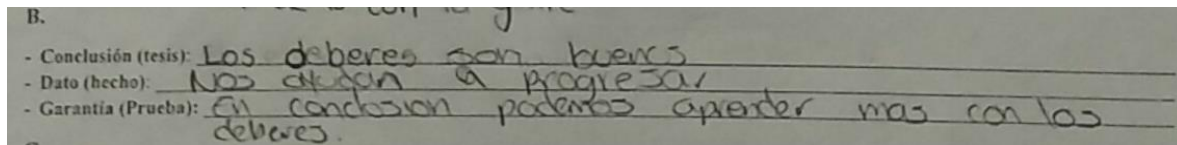 B.
- Conclusión (tesis): Los deberes son buenos
- Dato (hecho): Nos ayudan a progresar
- Garantía (Prueba): En conclosion podemos aprender mas con los
deberes.